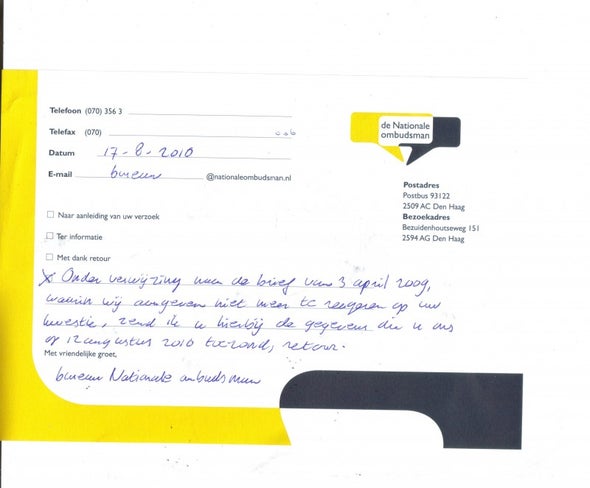 Telefoon (070) 356 3
Telefax (070)
Datum 17-8-2010
E-mail bureau @nationaleombudsman.nl
de Nationale
ombudsman
Postadres
Postbus 93122
2509 AC Den Haag
Bezoekadres
Bezuidenhoutseweg 151
2594 AG Den Haag
Naar aanleiding van uw verzoek
Ter informatie
Met dank retour
X Onder verwijzing naar de brief van 3 april 2009,
waarin wij aangeven niet meer te reageren op uw
kwestie, zend ik u hierbij de gegevens die u ons
op 12 augustus 2010 toezond, retour.
Met vriendelijke groet,
bureau Nationale ombudsman